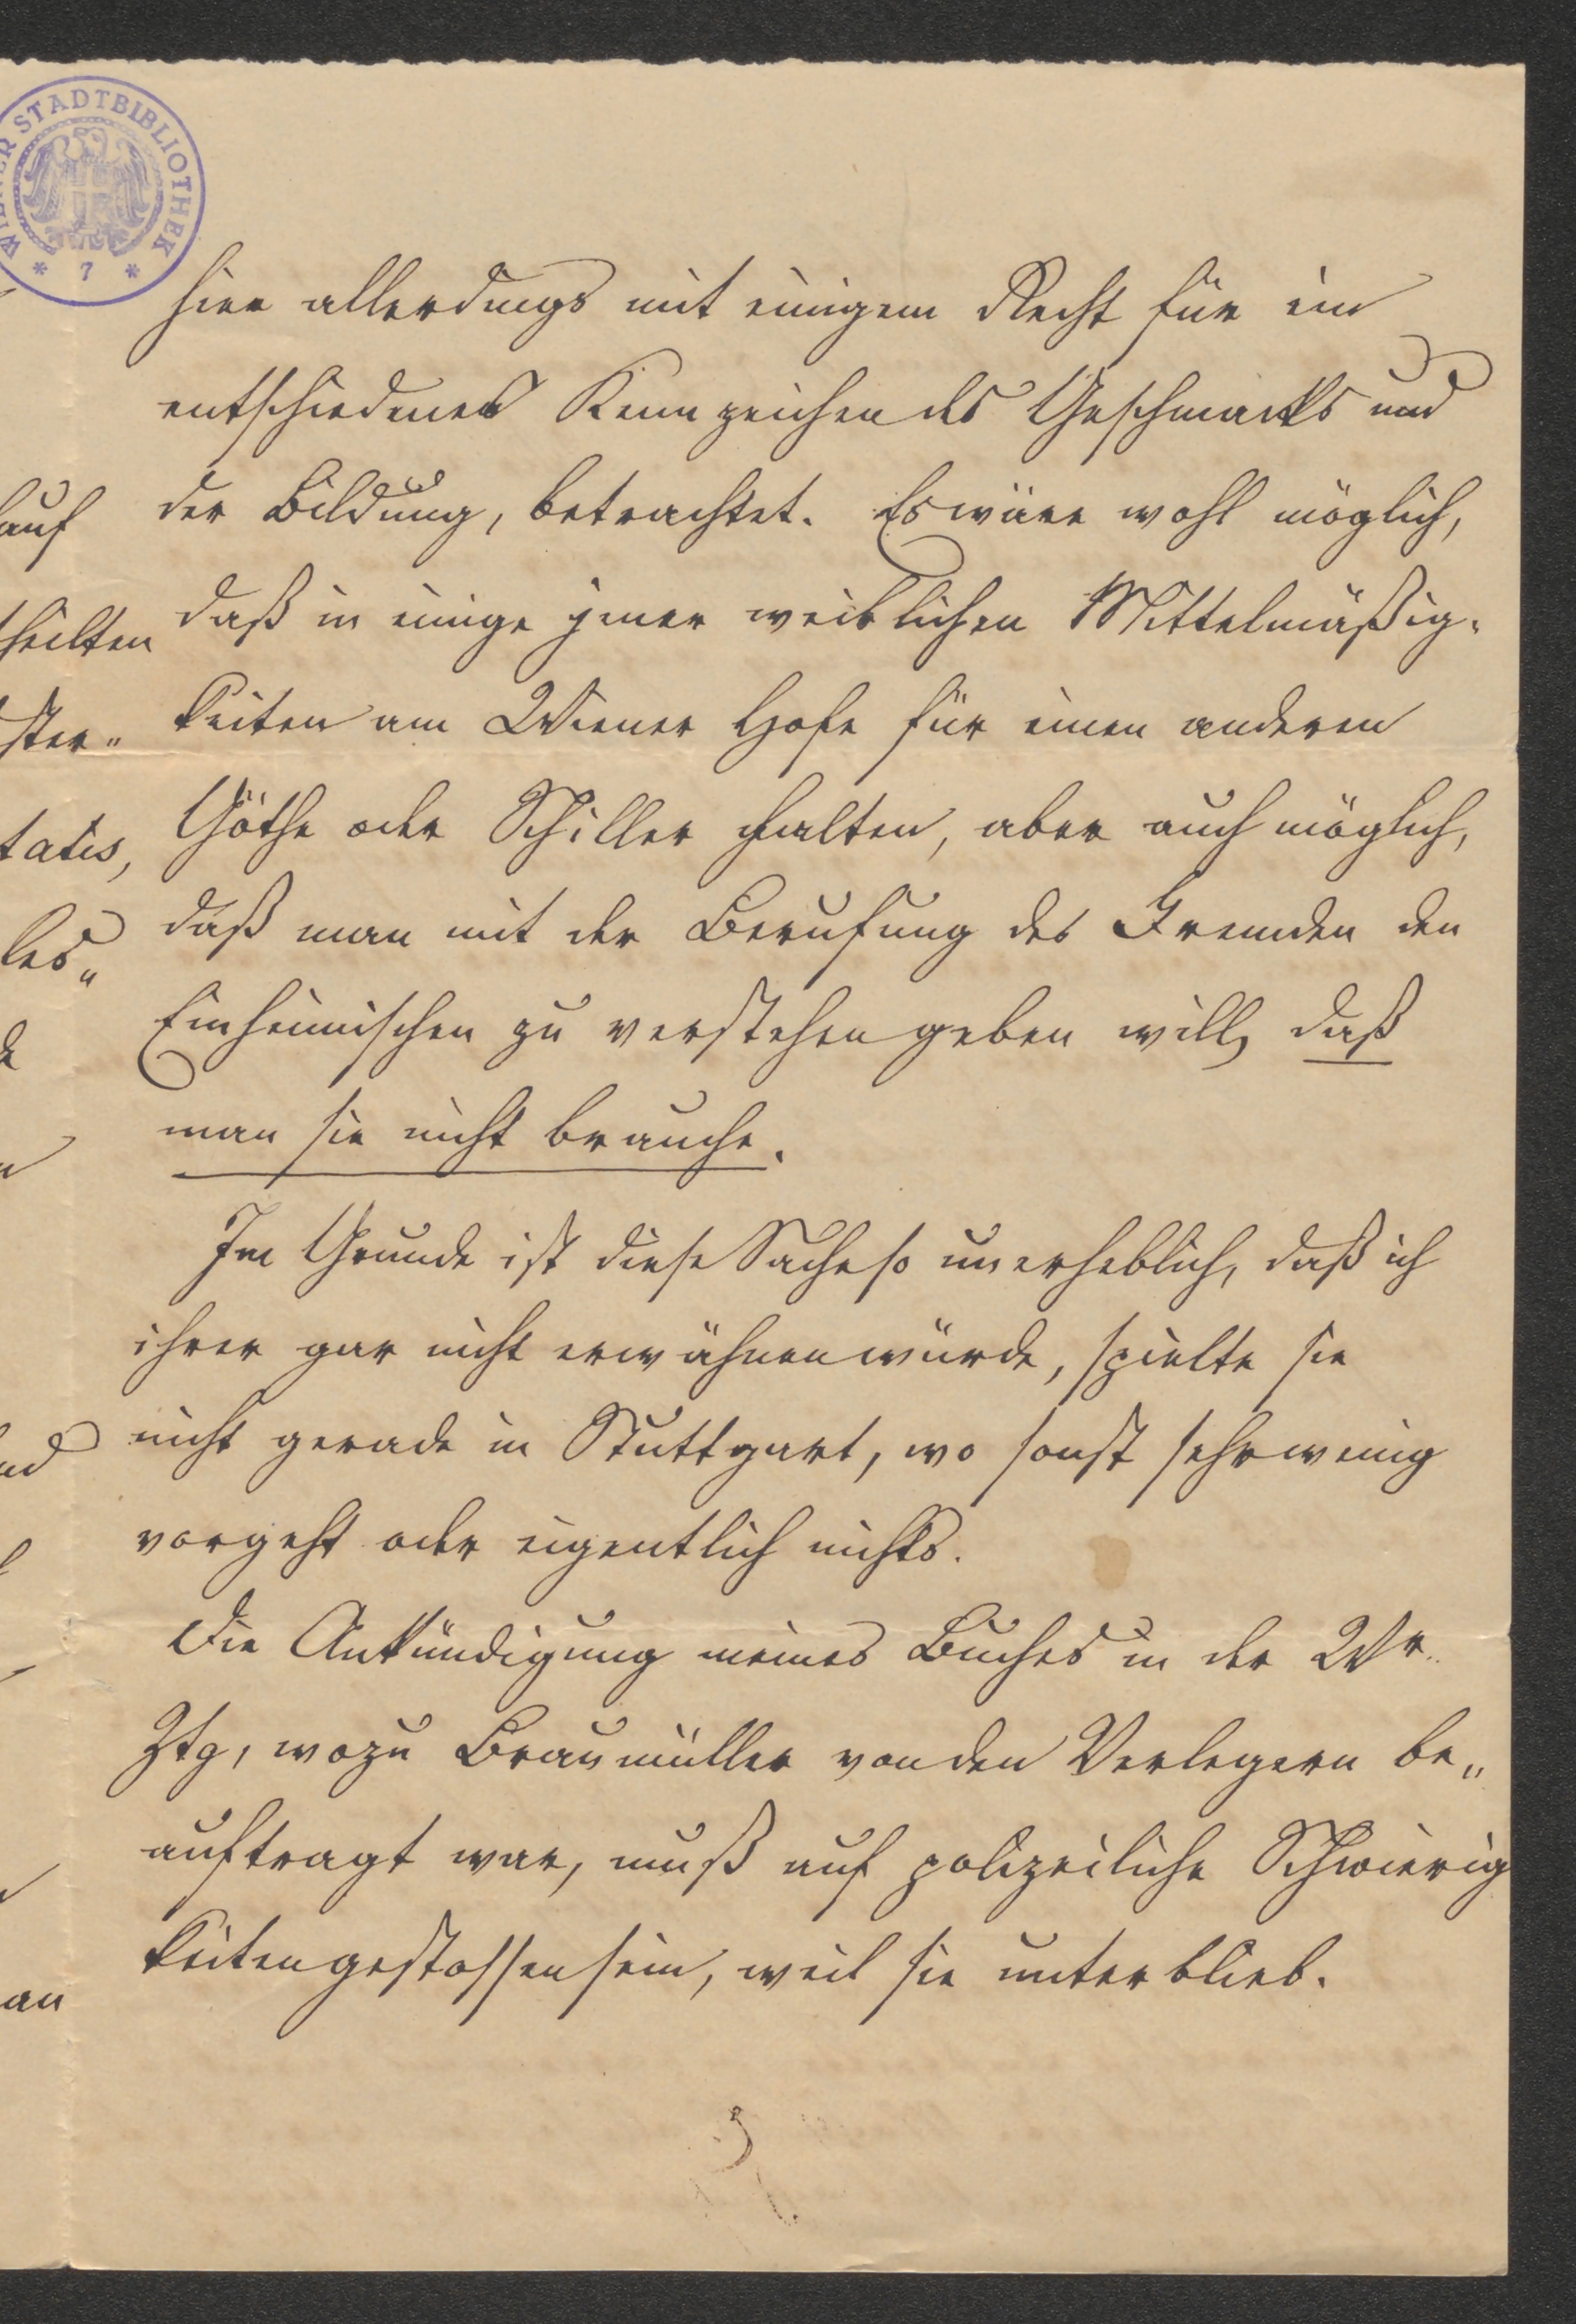 WIENER STADTBIBLIOTHEK
* 7 *
hier allerdings mit einigem Recht für ein
entschiedenes Kennzeichen des Geschmacks und
der Bildung, betrachtet. Es wäre wohl möglich,
daß in einige jener weiblichen Mittelmäßig-
keiten am Wiener Hofe für einen anderen
Göthe oder Schiller halten, aber auch möglich,
daß man mit der Berufung des Fremden den
Einheimischen zu verstehen geben will, daß
man sie nicht brauche.
Im Grunde ist diese Sache so unerheblich, daß ich
ihrer gar nicht erwähnen würde, spielte sie
nicht gerade in Stuttgart, wo sonst sehr wenig
vorgeht oder eigentlich nichts.
Die Ankündigung meines Buches in der Wr.
Ztg, wozu Braumüller von den Verlegern be„
auftragt war, muß auf polizeiliche Schwierig
keiten gestossen sein, weil sie unterblieb.
auf
theilten
ster„
tatis,
les„
an